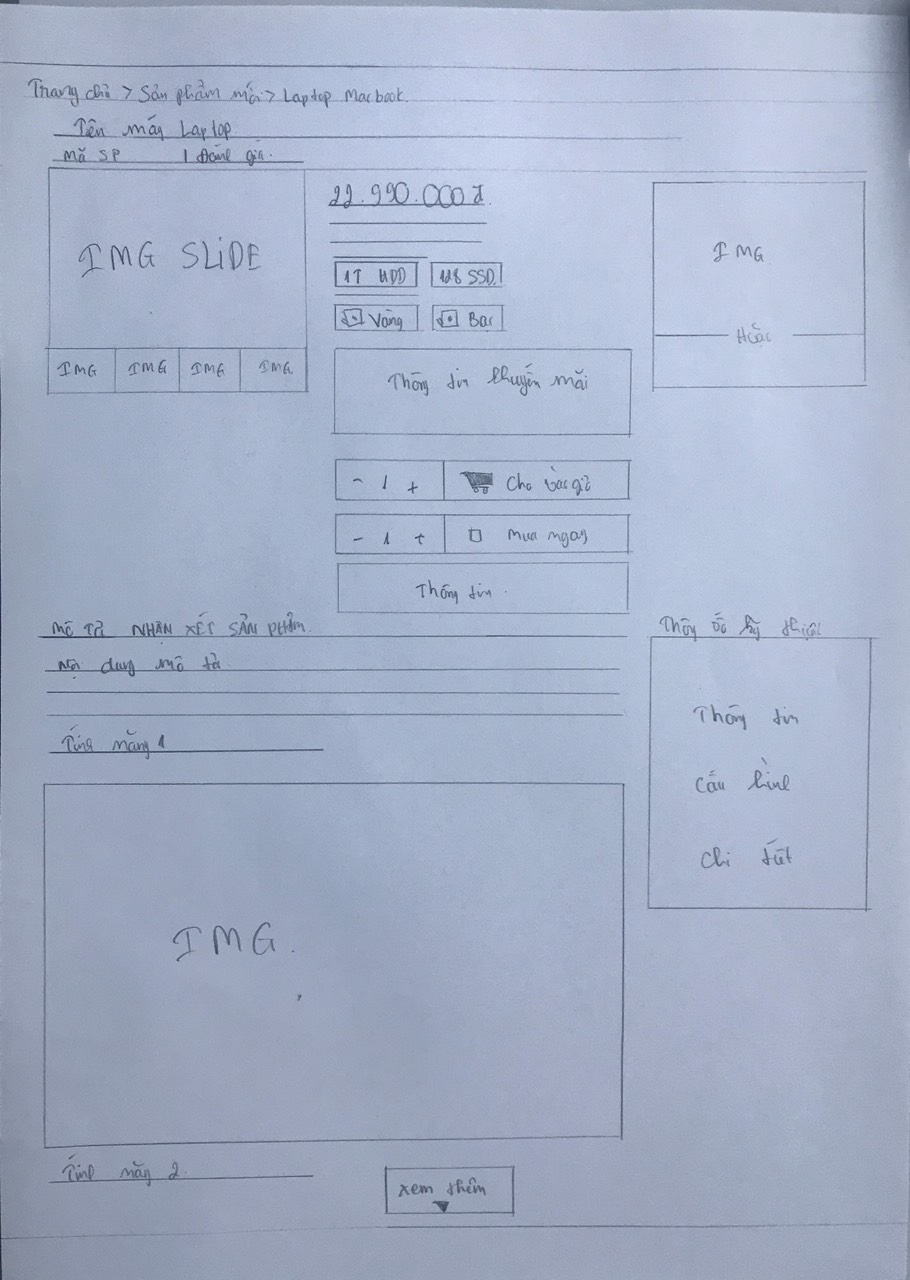 Trang chủ > Sản phẩm mới > Laptop Macbook
Tên máy Laptop
Mã SP 1 đánh giá
22.990.000đ
IMG SLIDE
IMG
1T HDD 128 SSD
Vàng Bạc
Hoặc
IMG IMG IMG IMG
Thông tin khuyến mãi
- 1 + Cho vào giỏ
- 1 + Mua ngay
Thông tin
MÔ TẢ NHẬN XÉT SẢN PHẨM
Nội dung mô tả
Tính năng 1
IMG.
Thông số kỹ thuật
Thông tin
Cấu hình
chi tiết
Tính năng 2
xem thêm